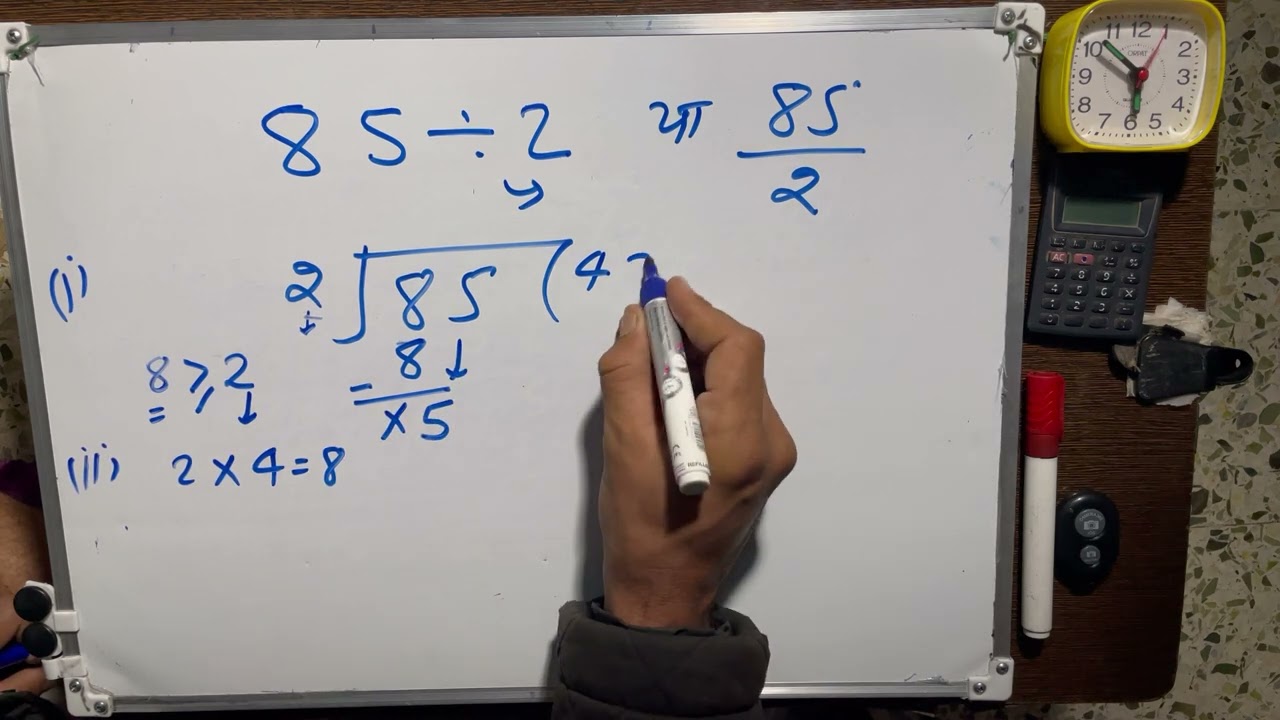 85÷2 या 85/2
(i) 2 85 (4
8
8 ≥ 2
= × 5
(ii) 2 × 4 = 8
11 12 1
10 2
9 3
8 4
7 6 5
ORPAT
AC